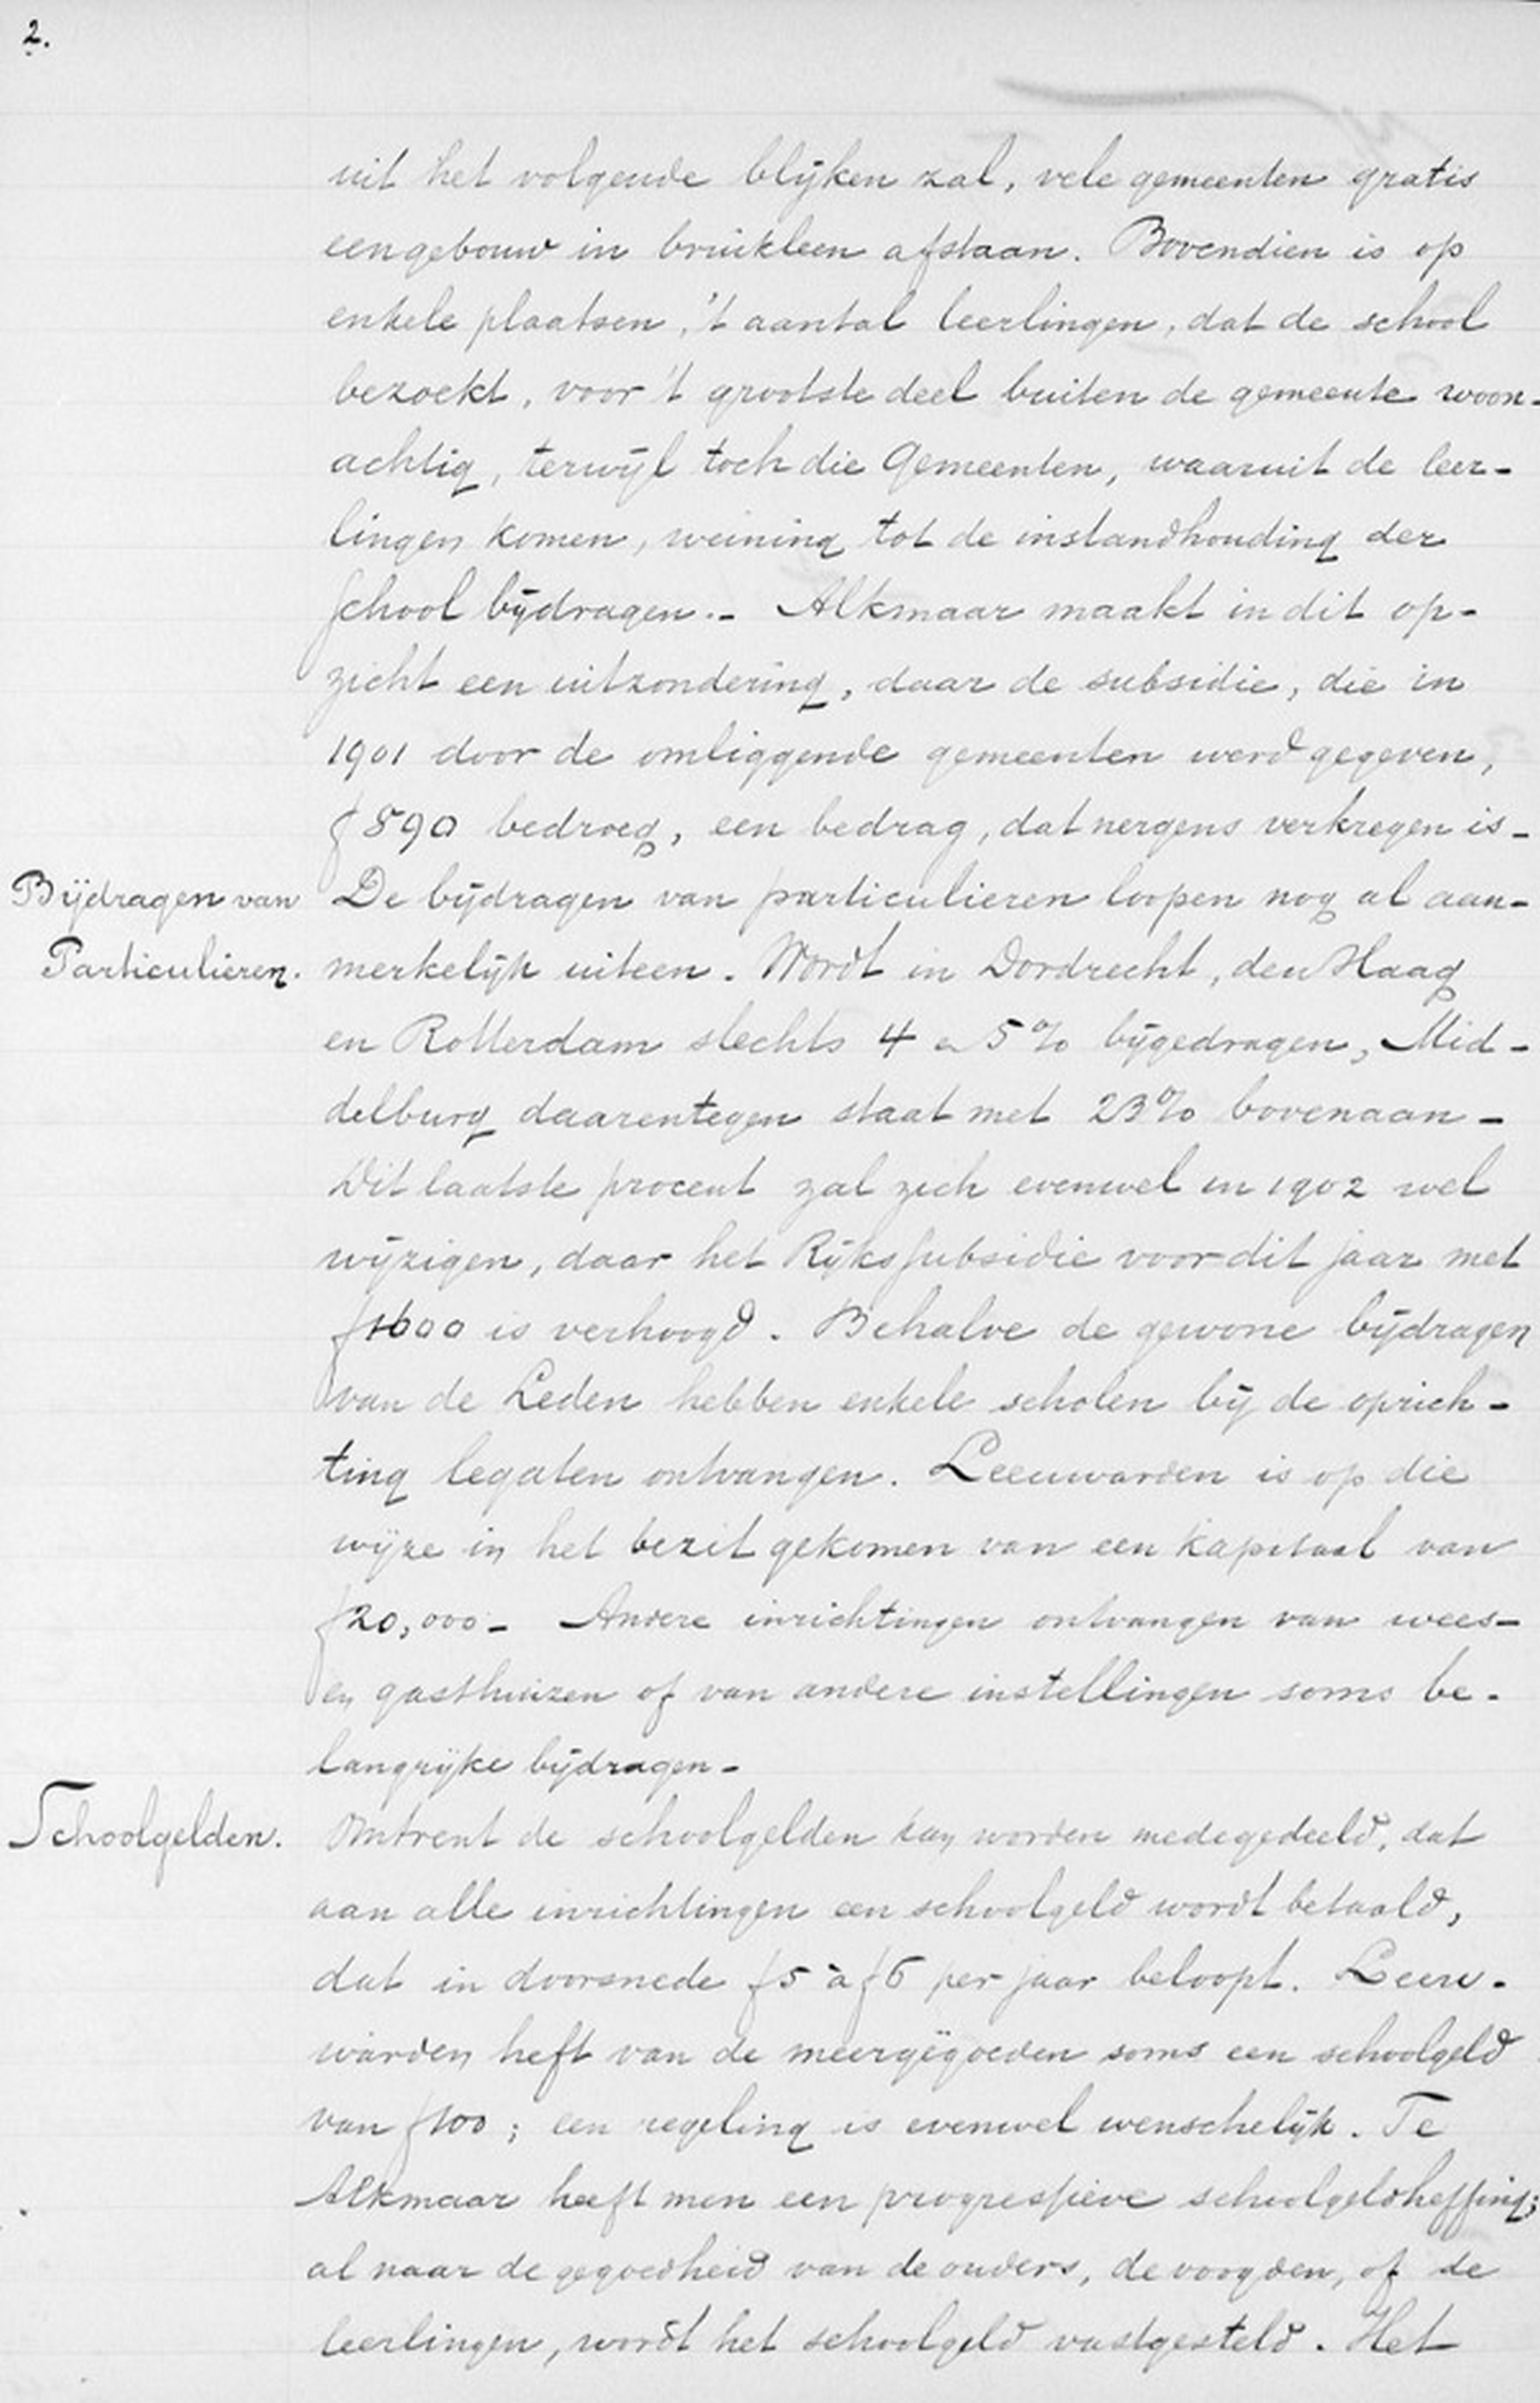 2.
uit het volgende blijken zal, vele gemeenten gratis
een gebouw in bruikleen afstaan. Bovendien is op
enkele plaatsen, 't aantal leerlingen, dat de school
bezoekt, voor 't grootste deel buiten de gemeente woon-
achtig, terwijl toch die Gemeenten, waaruit de leer-
lingen komen, weining tot de instandhouding der
school bijdragen.- Alkmaar maakt in dit op-
zicht een uitzondering, daar de subsidie, die in
1901 door de omliggende gemeenten werd gegeven,
f 890 bedroeg, een bedrag, dat nergens verkregen is-
Bijdragen van
Particulieren.
De bijdragen van particulieren loopen nog al aan-
merkelijk uiteen. Wordt in Dordrecht, den Haag
en Rotterdam slechts 4 a 5% bijgedragen, Mid-
delburg daarentegen staat met 23% bovenaan-
Dit laatste procent zal zich evenwel in 1902 wel
wijzigen, daar het Rijkssubsidie voor dit jaar met
f1600 is verhoogd. Behalve de gewone bijdragen
van de Leden hebben enkele scholen bij de oprich-
ting legaten ontvangen. Leeuwarden is op die
wijze in het bezit gekomen van een kapitaal van
f20,000- Andere inrichtingen ontvangen van wees-
en gasthuizen of van andere instellingen soms be-
langrijke bijdragen-
Schoolgelden.
Omtrent de schoolgelden kan worden medegedeeld, dat
aan alle inrichtingen een schoolgeld wordt betaald,
dat in doorsnede f5 à f6 per jaar beloopt. Leeu-
warden heft van de meergegoeden soms een schoolgeld
van f100; een regeling is evenwel wenschelijk. Te
Alkmaar heeft men een progressieve schoolgeldheffing;
al naar de gegoedheid van de ouders, de voogden, of de
leerlingen, wordt het schoolgeld vastgesteld. Het